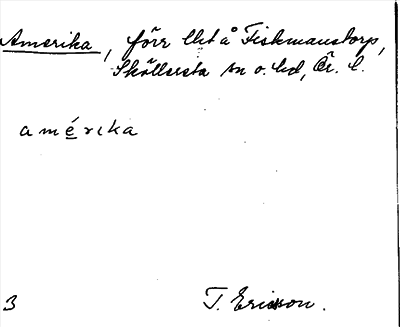 Amerika, förr lht å Fiskmanstorp,
Sköllersta sn o. hd, Ör. l.
amérika
3 T. Ericsson.